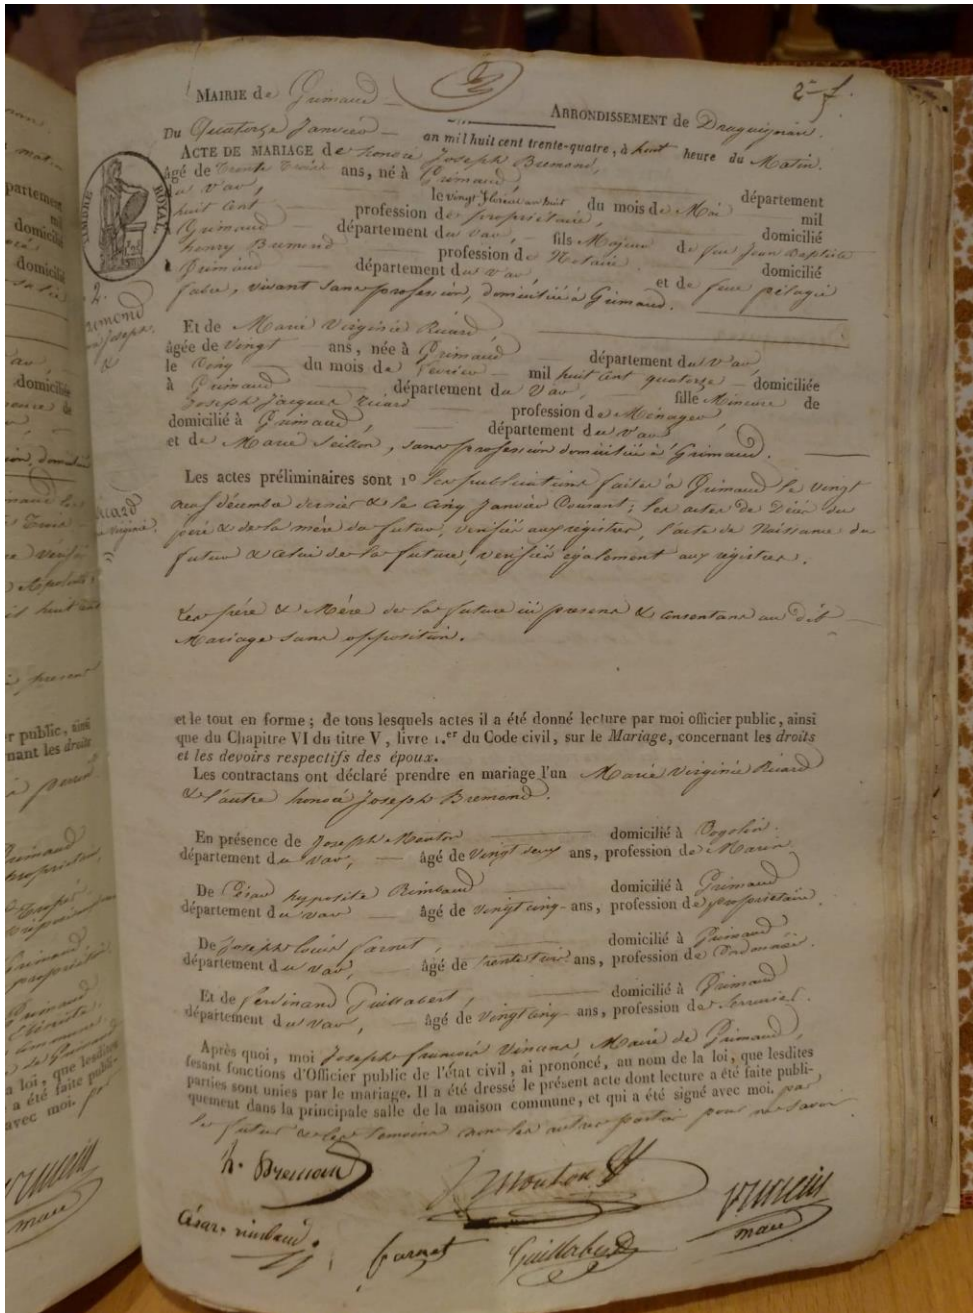 MAIRIE de Grimaud
2
ARRONDISSEMENT de Draguignan.
Du Quatorze Janvier an mil huit cent trente-quatre, à huit heure du Matin.
ACTE DE MARIAGE de honoré Joseph Bremond,
âgé de Trente Trois ans, né à Grimaud, département
du Var, le vingt floréal an huit du mois de Mai mil
huit cent profession de propriétaire, domicilié
Grimaud département du Var, fils Majeur de feu Jean Baptiste
henry Bremond profession de Notaire domicilié
à Grimaud département du var et de feue pélagie
fabre, vivant sans profession, domiciliée à Grimaud.
TIMBRE ROYAL
2.
Bremond
Joseph
&
Et de Marie Virginie Ricard
âgée de vingt ans, née à Grimaud département du Var,
le Cinq du mois de février mil huit cent quatorze domiciliée
à Grimaud département du Var, fille Mineure de
Joseph Jacques Ricard profession de Ménager,
domicilié à Grimaud, département du Var
et de Marie Seillon, sans profession domiciliée à Grimaud.
Ricard
Virginie
Les actes préliminaires sont 1º les publications faites à Grimaud le vingt
neuf décembre dernier & le cinq Janvier Courant; les actes de Décès du
père & de la mère du futur, vérifiés aux registres, l'acte de Naissance du
futur & celui de la future, vérifiés également aux registres.
Les père & Mère de la future ici présens & consentans au dit
Mariage sans opposition.
et le tout en forme ; de tous lesquels actes il a été donné lecture par moi officier public, ainsi
que du Chapitre VI du titre V, livre 1.er du Code civil, sur le Mariage, concernant les droits
et les devoirs respectifs des époux.
Les contractans ont déclaré prendre en mariage l'un Marie Virginie Ricard
& l'autre honoré Joseph Bremond.
En présence de Joseph Mouton domicilié à Cogolin.
département du Var, âgé de vingt deux ans, profession de Marin
De César hypolite Rimbaud domicilié à Grimaud
département du var âgé de vingt cinq ans, profession de propriétaire.
De Joseph Louis farnet, domicilié à Grimaud
département du Var, âgé de trente trois ans, profession de Cordonnier.
Et de ferdinand Guillabert, domicilié à Grimaud
département du Var, âgé de vingt cinq ans, profession de Serrurier.
Après quoi, moi Joseph françois Vincens Maire de Grimaud,
fesant fonctions d'Officier public de l'état civil, ai prononcé, au nom de la loi, que lesdites
parties sont unies par le mariage. Il a été dressé le présent acte dont lecture a été faite publi-
quement dans la principale salle de la maison commune, et qui a été signé avec moi, par
le futur & les temoins non les autres parties pour ne savoir
h. Bremond
J Mouton
César. rimbaud.
farnet
Guillabert
vincens
maire